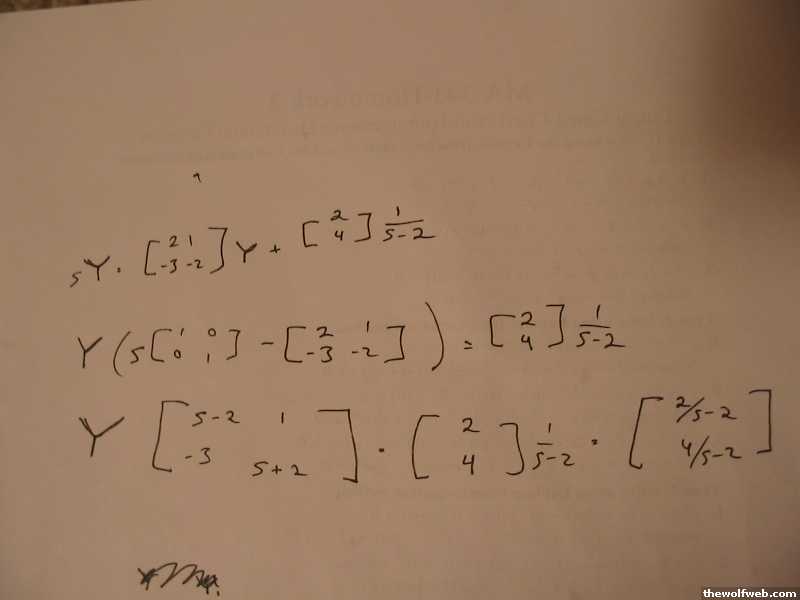 sY = [2 1; -3 -2] Y + [2; 4] 1/(s-2)
Y (s [1 0; 0 1] - [2 1; -3 -2]) = [2; 4] 1/(s-2)
Y [s-2 1; -3 s+2] = [2; 4] 1/(s-2) = [2/s-2; 4/s-2]
thewolfweb.com